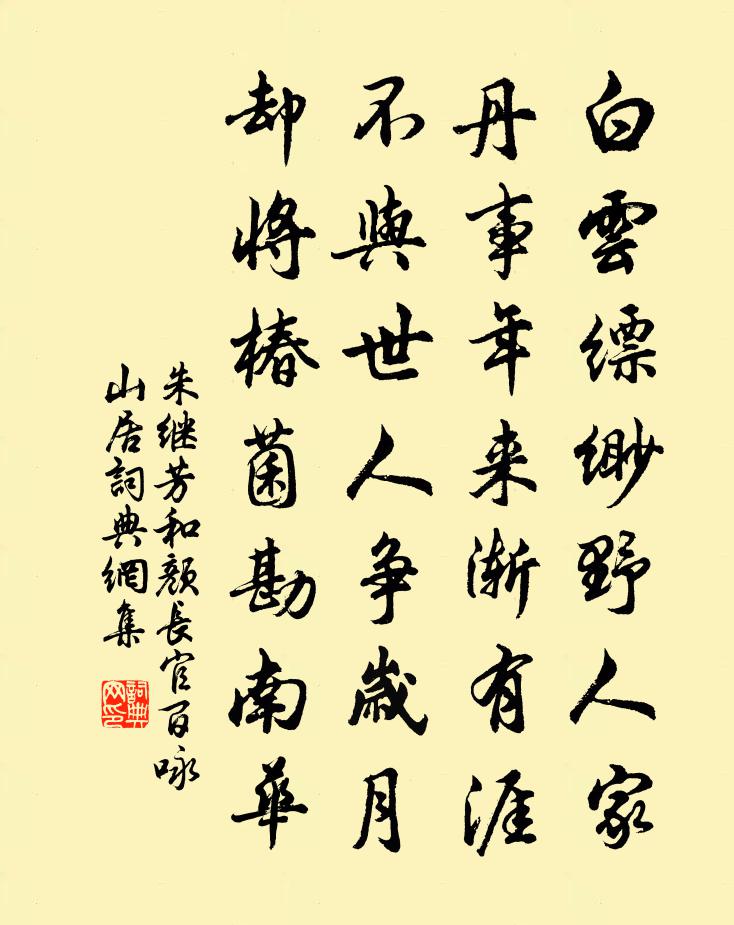 白雲縹緲野人家
丹事年来漸有涯
不與世人争歲月
却將椿菌勘南華
朱继芳和颜長官百咏
山居詞典網集
詞典网印